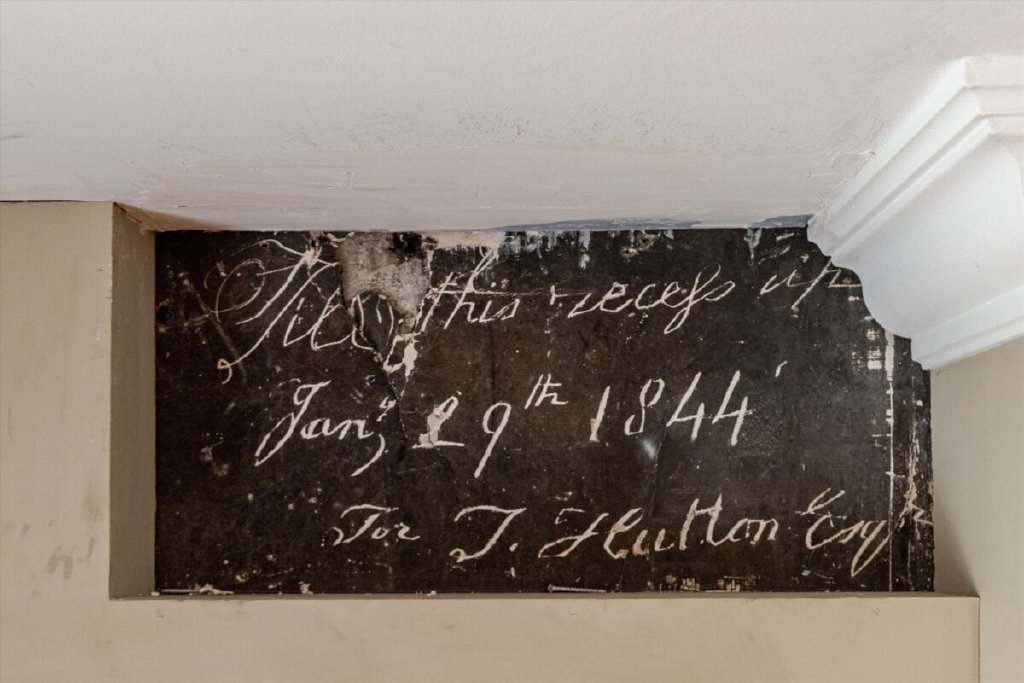 this recess up
Jany 29th 1844
For T. Hutton Esqr